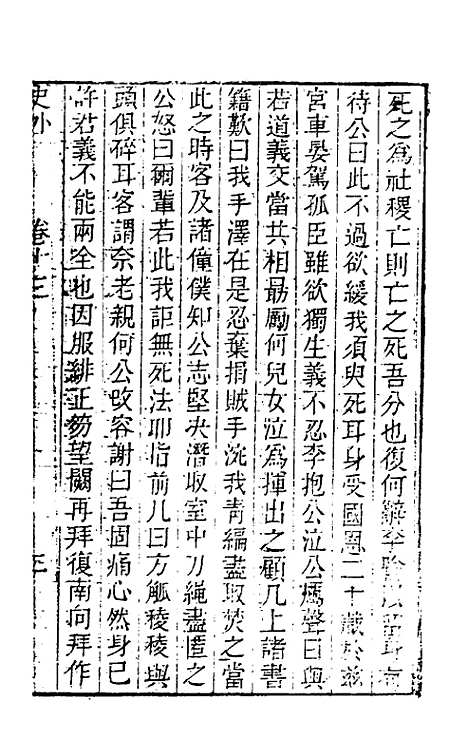 死之為社稷亡則亡之死吾分也復何辭李
待公曰此不過欲緩我須臾死耳身受國恩二十載於茲
宮車晏駕孤臣雖欲獨生義不忍李抱公泣公厲聲曰與
若道義交當共相最勵何兒女泣為揮出之顧几上諸書
籍歎曰我手澤在是忍棄捐賊手涴我青編盡取焚之當
此之時客及諸僮僕知公志堅決潛收室中刀繩盡匿之
公怒曰爾輩若此我詎無死法耶指前几曰方觚稜稜與
頭俱碎耳客謂奈老親何公改容謝曰吾固痛心然身已
許君義不能兩全也因服緋正笏望闕再拜復南向拜作
史外 卷十二 三